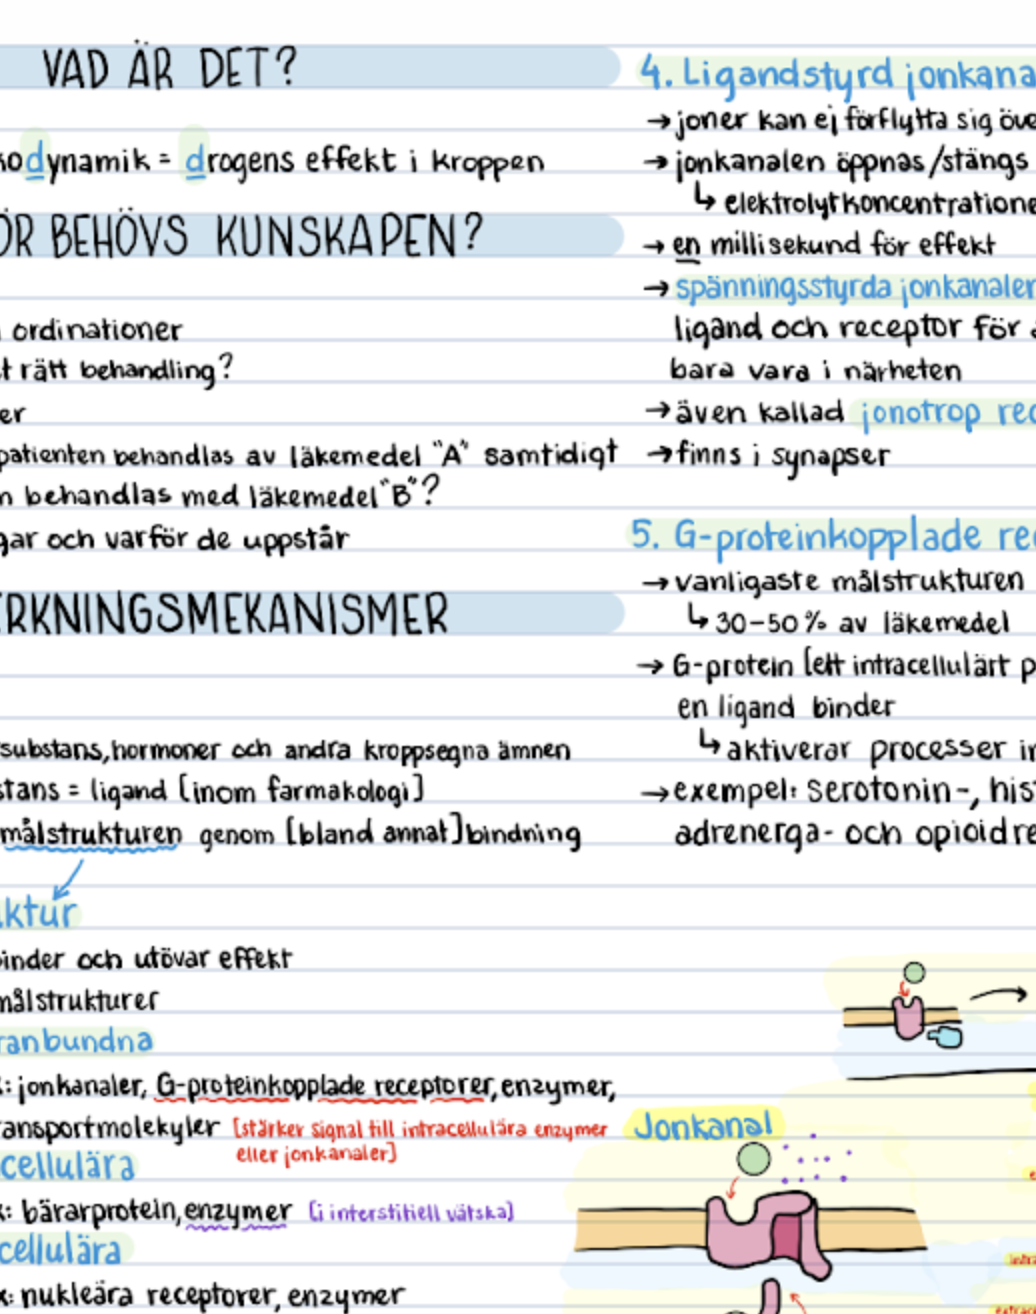 VAD ÄR DET?
kodynamik = drogens effekt i kroppen
ÖR BEHÖVS KUNSKAPEN?
ordinationer
t rätt behandling?
er
patienten behandlas av läkemedel "A" samtidigt
n behandlas med läkemedel "B"?
gar och varför de uppstår
ERKNINGSMEKANISMER
substans, hormoner och andra kroppsegna ämnen
stans = ligand [inom farmakologi]
målstrukturen genom [bland annat] bindning
ktur
binder och utövar effekt
målstrukturer
ranbundna
x: jonkanaler, G-proteinkopplade receptorer, enzymer,
ransportmolekyler [stärker signal till intracellulära enzymer
eller jonkanaler]
cellulära
x: bärarprotein, enzymer [i interstitiell vätska]
cellulära
x: nukleära receptorer, enzymer
4. Ligandstyrd jonkana
→ joner kan ej förflytta sig öve
→ jonkanalen öppnas/stängs
↳ elektrolytkoncentratione
→ en millisekund för effekt
→ spänningsstyrda jonkanaler
ligand och receptor för a
bara vara i närheten
→ även kallad jonotrop rec
→ finns i synapser
5. G-proteinkopplade re
→ vanligaste målstrukturen
↳ 30-50% av läkemedel
→ G-protein [ett intracellulärt p
en ligand binder
↳ aktiverar processer in
→ exempel: serotonin-, his
adrenerga- och opioidre
Jonkanal